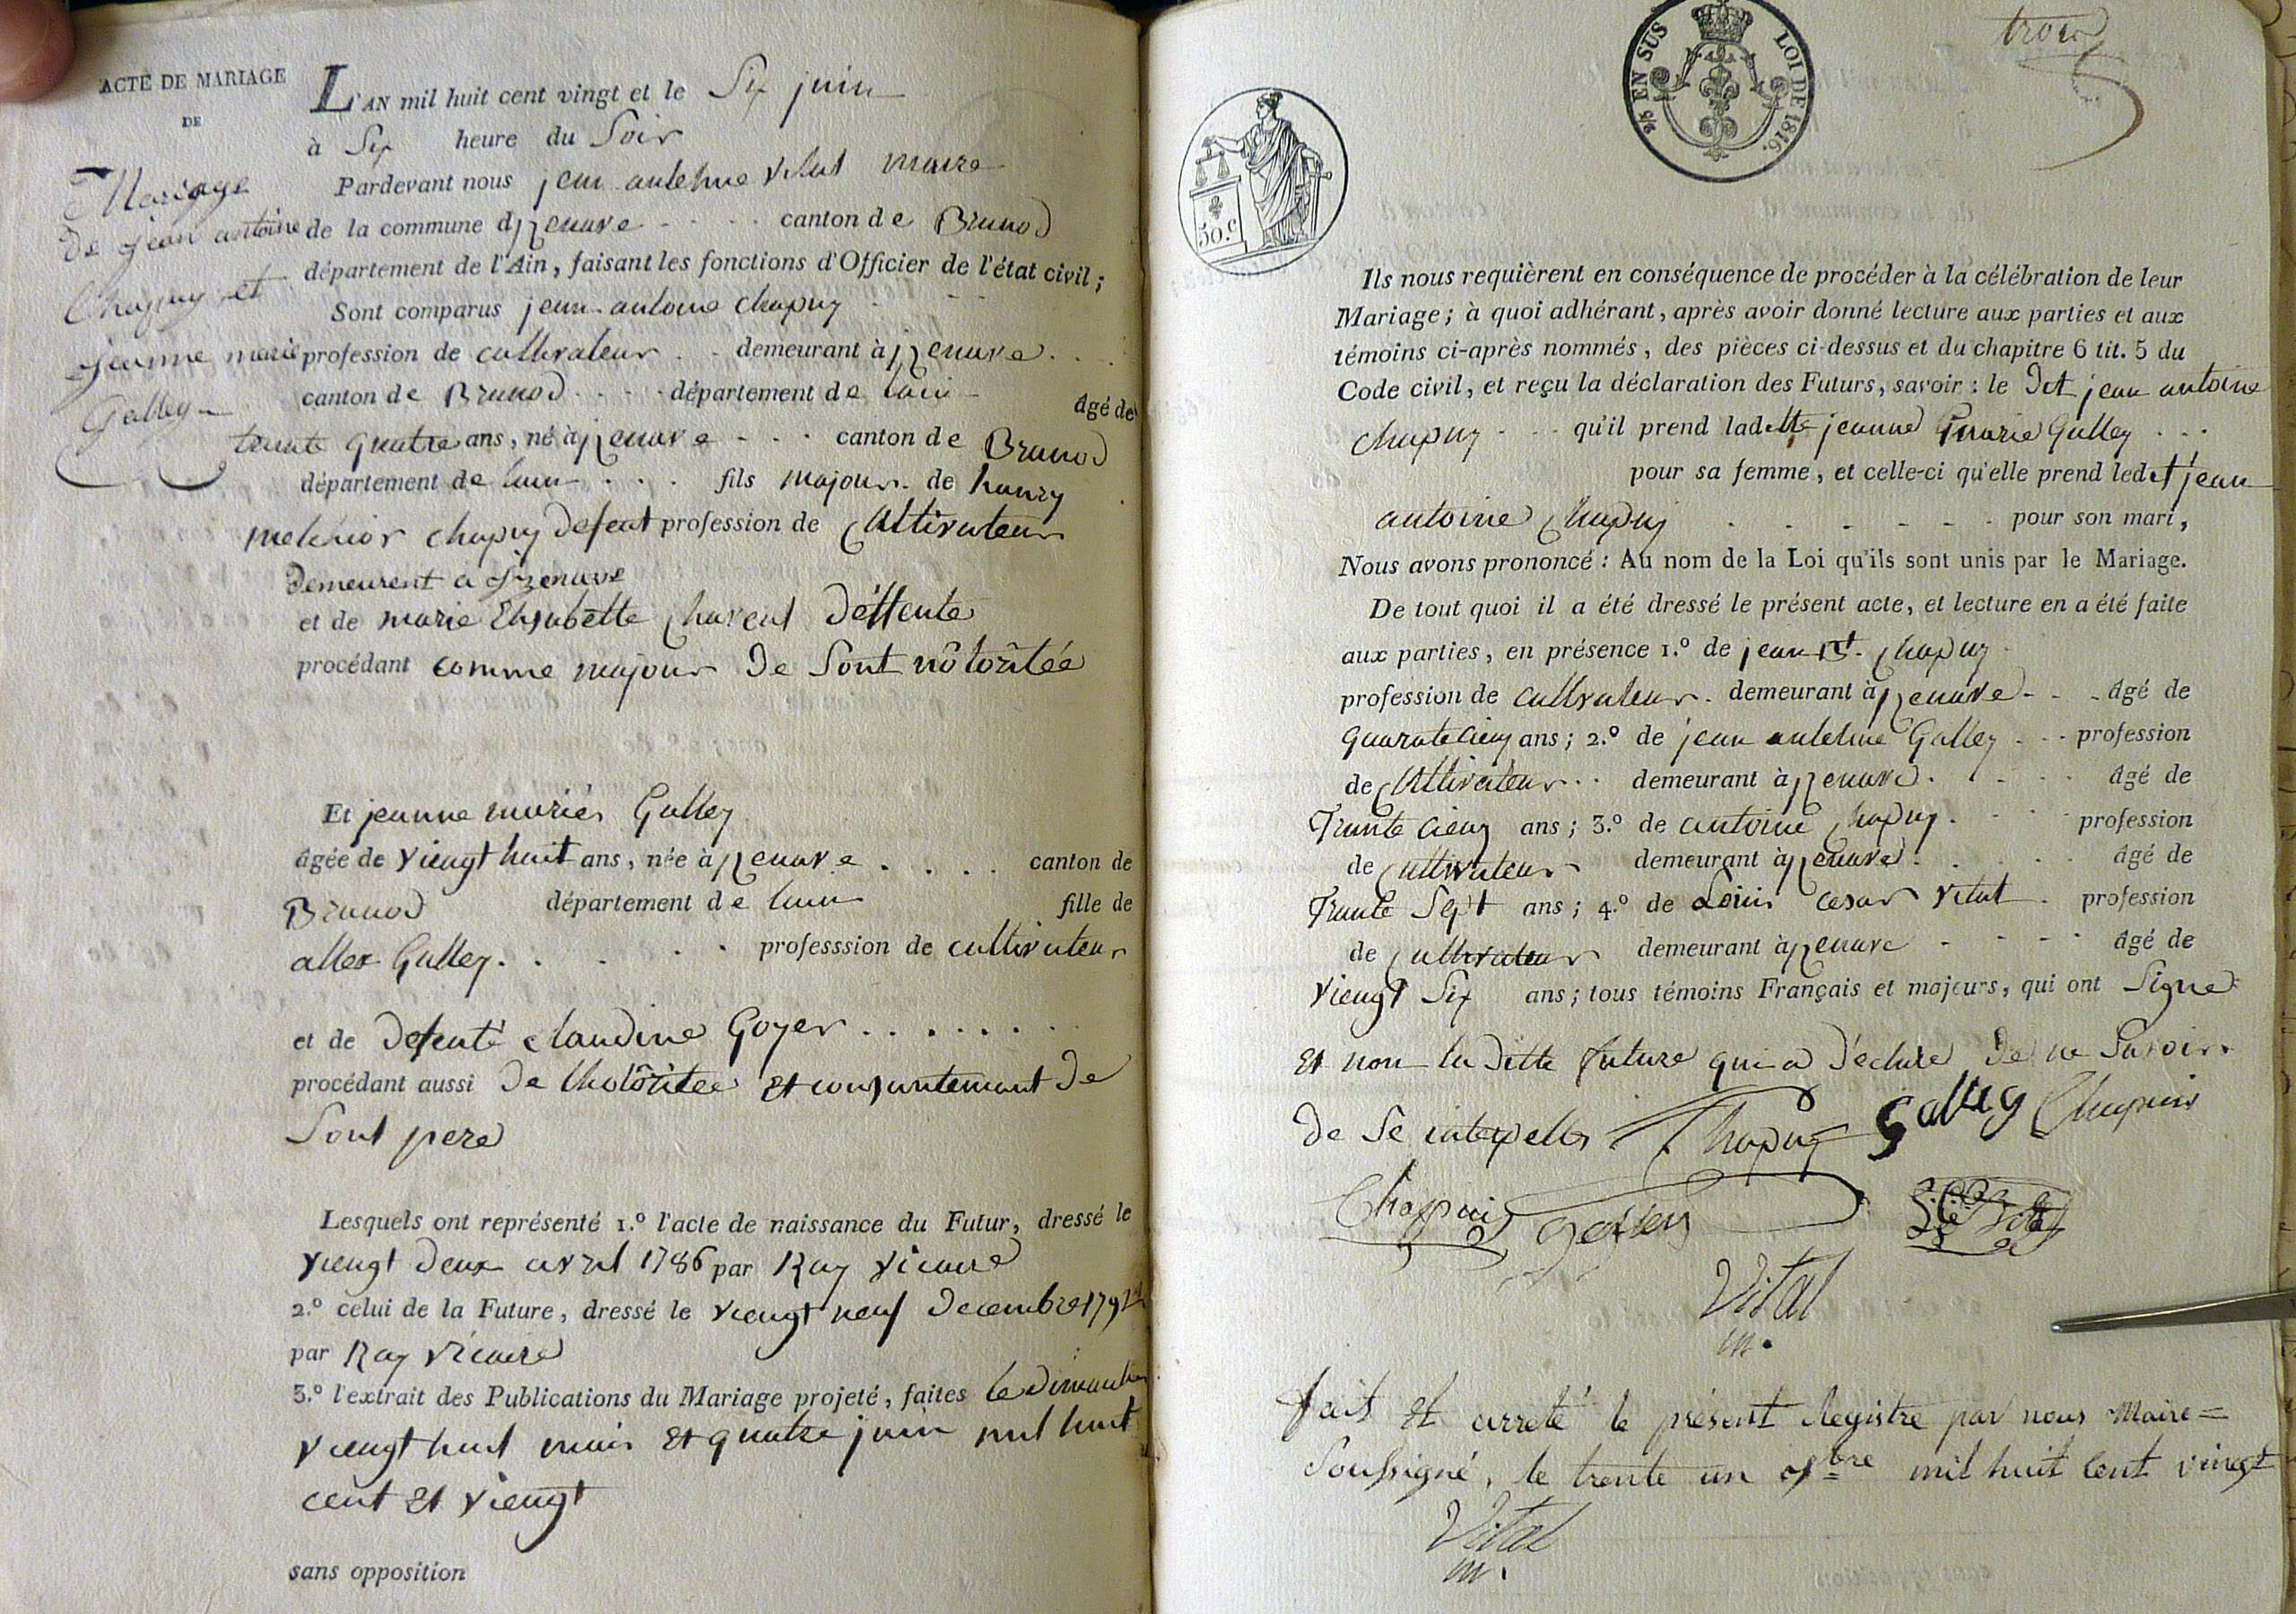 ACTE DE MARIAGE
DE
Mariage
De jean antoine
Chapuy et
jeanne marie
Galley
L'AN mil huit cent vingt et le Six juin
à Six heure du Soir
Pardevant nous jean antelme vital maire
de la commune d'izenave canton de Brunod
département de l'Ain, faisant les fonctions d'Officier de l'état civil;
Sont comparus jean antoine chapuy
profession de cultivateur demeurant à izenave
canton de Brunod département de lain âgé de
trente quatre ans, né à izenave canton de Brunod
département de lain fils majour de hanry
melchior chapuy defeut profession de Cultivateur
demeurent a izenave
et de marie Elisabette Charent déffente
procédant comme majour de Sont nôtoritée
Et jeanne mariés Galley
âgée de vieugt huit ans, née à izenave canton de
Brunod département de lain fille de
allex Galley professsion de cultivateur
et de defente claudine Goyer
procédant aussi de lhotôritee et consuntemant de
Sont pere
Lesquels ont représenté 1.º l'acte de naissance du Futur, dressé le
vieugt deux avril 1786 par Ray vicaire
2.º celui de la Future, dressé le vieugt neuf decembre
par Ray vicaire
3.º l'extrait des Publications du Mariage projeté, faites le dimanche
vieugt huit mais et quatre juin mil huit
cent et vieugt
sans opposition
trois
2/5 EN SUS LOI DE 1816.
50.c
Ils nous requièrent en conséquence de procéder à la célébration de leur
Mariage; à quoi adhérant, après avoir donné lecture aux parties et aux
témoins ci-après nommés, des pièces ci-dessus et du chapitre 6 tit. 5 du
Code civil, et reçu la déclaration des Futurs, savoir: le dit jean antoine
chapuy qu'il prend ladette jeanne marie Galley
pour sa femme, et celle-ci qu'elle prend ledet jean
antoine Chapuy pour son mari,
Nous avons prononcé: Au nom de la Loi qu'ils sont unis par le Mariage.
De tout quoi il a été dressé le présent acte, et lecture en a été faite
aux parties, en présence 1.º de jean Bt. Chapuy
profession de cultivateur demeurant à izenave âgé de
quarate cieuq ans; 2.º de jean antelme Galley profession
de Cultivateur demeurant à izenave âgé de
Trante cieuq ans; 3.º de antoine Chapuy profession
de Cultivateur demeurant à izenave âgé de
Trante Sept ans; 4.º de Louis cesar vital profession
de Cultivateur demeurant à izenave âgé de
vieugt Six ans; tous témoins Français et majeurs, qui ont Signe
et non la ditte future qui a déclare de ne Savoir
de Se interpelle Chapuy Galley Chapuis
Chapuis galley
Vital
m.
fait et arreté le présent Registre par nous Maire=
Soussigné, le trente un Xbre mil huit Cent vingt
Vital
m.